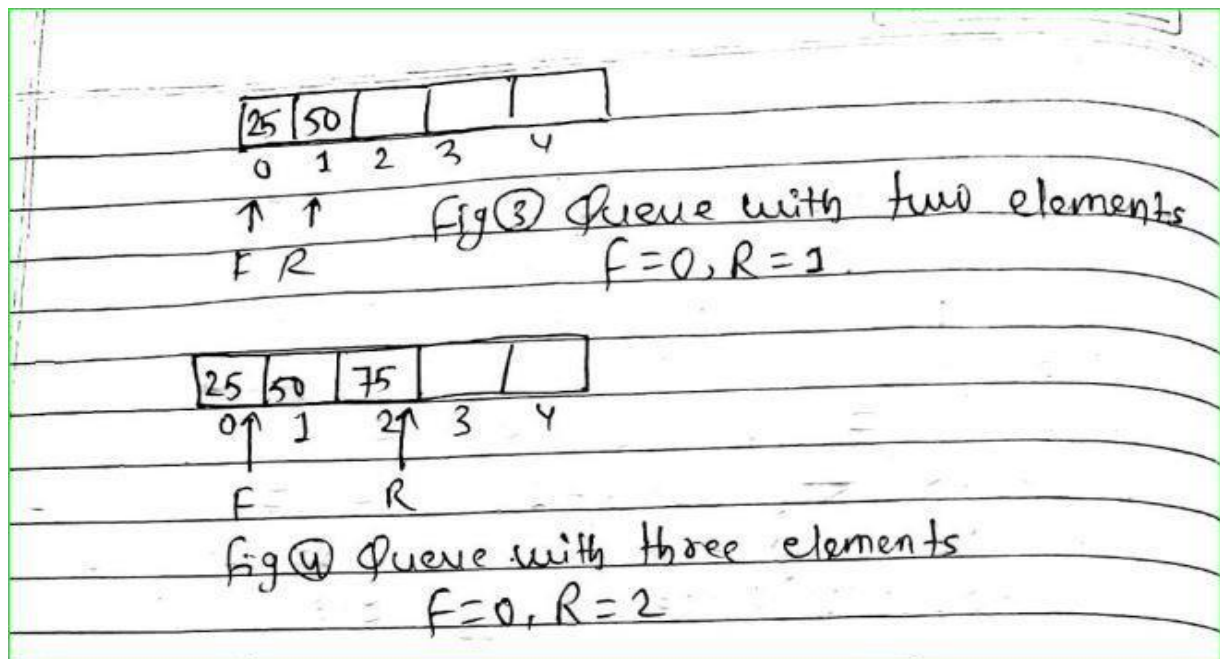 25 50
0 1 2 3 4
↑ ↑
F R
Fig ③ Queue with two elements
F=0, R=1.
25 50 75
0↑ 1 2↑ 3 4
F R
Fig ④ Queue with three elements
F=0, R=2